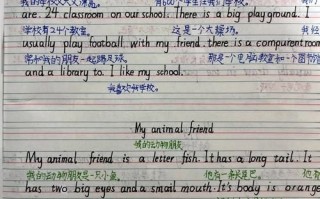 我的学校又大又漂亮。 有60个学生在我们学校。
are. 24 classroom on our school. There is a big playground. I
学校有24个教室。 这是一个大操场。
usually play football with my friend. there is a compurent room
常和我的朋友一起踢足球。 那是一个电脑教室和一个图书馆
and a library to. I like my school.
我喜欢我学校。
My animal friend
我的动物朋友
My animal friend is a letter fish. It has a long tail. It
我的动物朋友是一只小鱼。 他有一条长尾巴。
has two big eyes and a small mouth. It's body is orange